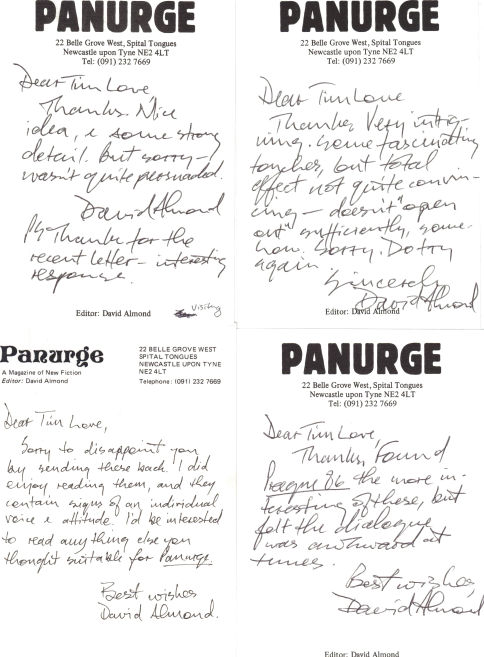 PANURGE
22 Belle Grove West, Spital Tongues
Newcastle upon Tyne NE2 4LT
Tel: (091) 232 7669
Dear Tim Love
Thanks. Nice
idea, & some strong
detail. But sorry –
wasn't quite persuaded.
David Almond
PS Thanks for the
recent letter – interesting
response.
Editor: David Almond
Visiting
PANURGE
22 Belle Grove West, Spital Tongues
Newcastle upon Tyne NE2 4LT
Tel: (091) 232 7669
Dear Tim Love
Thanks. Very intrig-
uing. Some fascinating
touches, but total
effect not quite convin-
cing – doesn't "open
out" sufficiently, some-
how. Sorry. Do try
again.
Sincerely
David Almond
Editor: David Almond
Panurge
A Magazine of New Fiction
Editor: David Almond
22 BELLE GROVE WEST
SPITAL TONGUES
NEWCASTLE UPON TYNE
NE2 4LT
Telephone: (091) 232 7669
Dear Tim Love,
Sorry to disappoint you
by sending these back. I did
enjoy reading them, and they
contain signs of an individual
voice & attitude. I'd be interested
to read anything else you
thought suitable for Panurge.
Best wishes
David Almond.
PANURGE
22 Belle Grove West, Spital Tongues
Newcastle upon Tyne NE2 4LT
Tel: (091) 232 7669
Dear Tim Love,
Thanks. Found
Prague 86 the more in-
teresting of these, but
felt the dialogue
was awkward at
times.
Best wishes
David Almond
Editor: David Almond